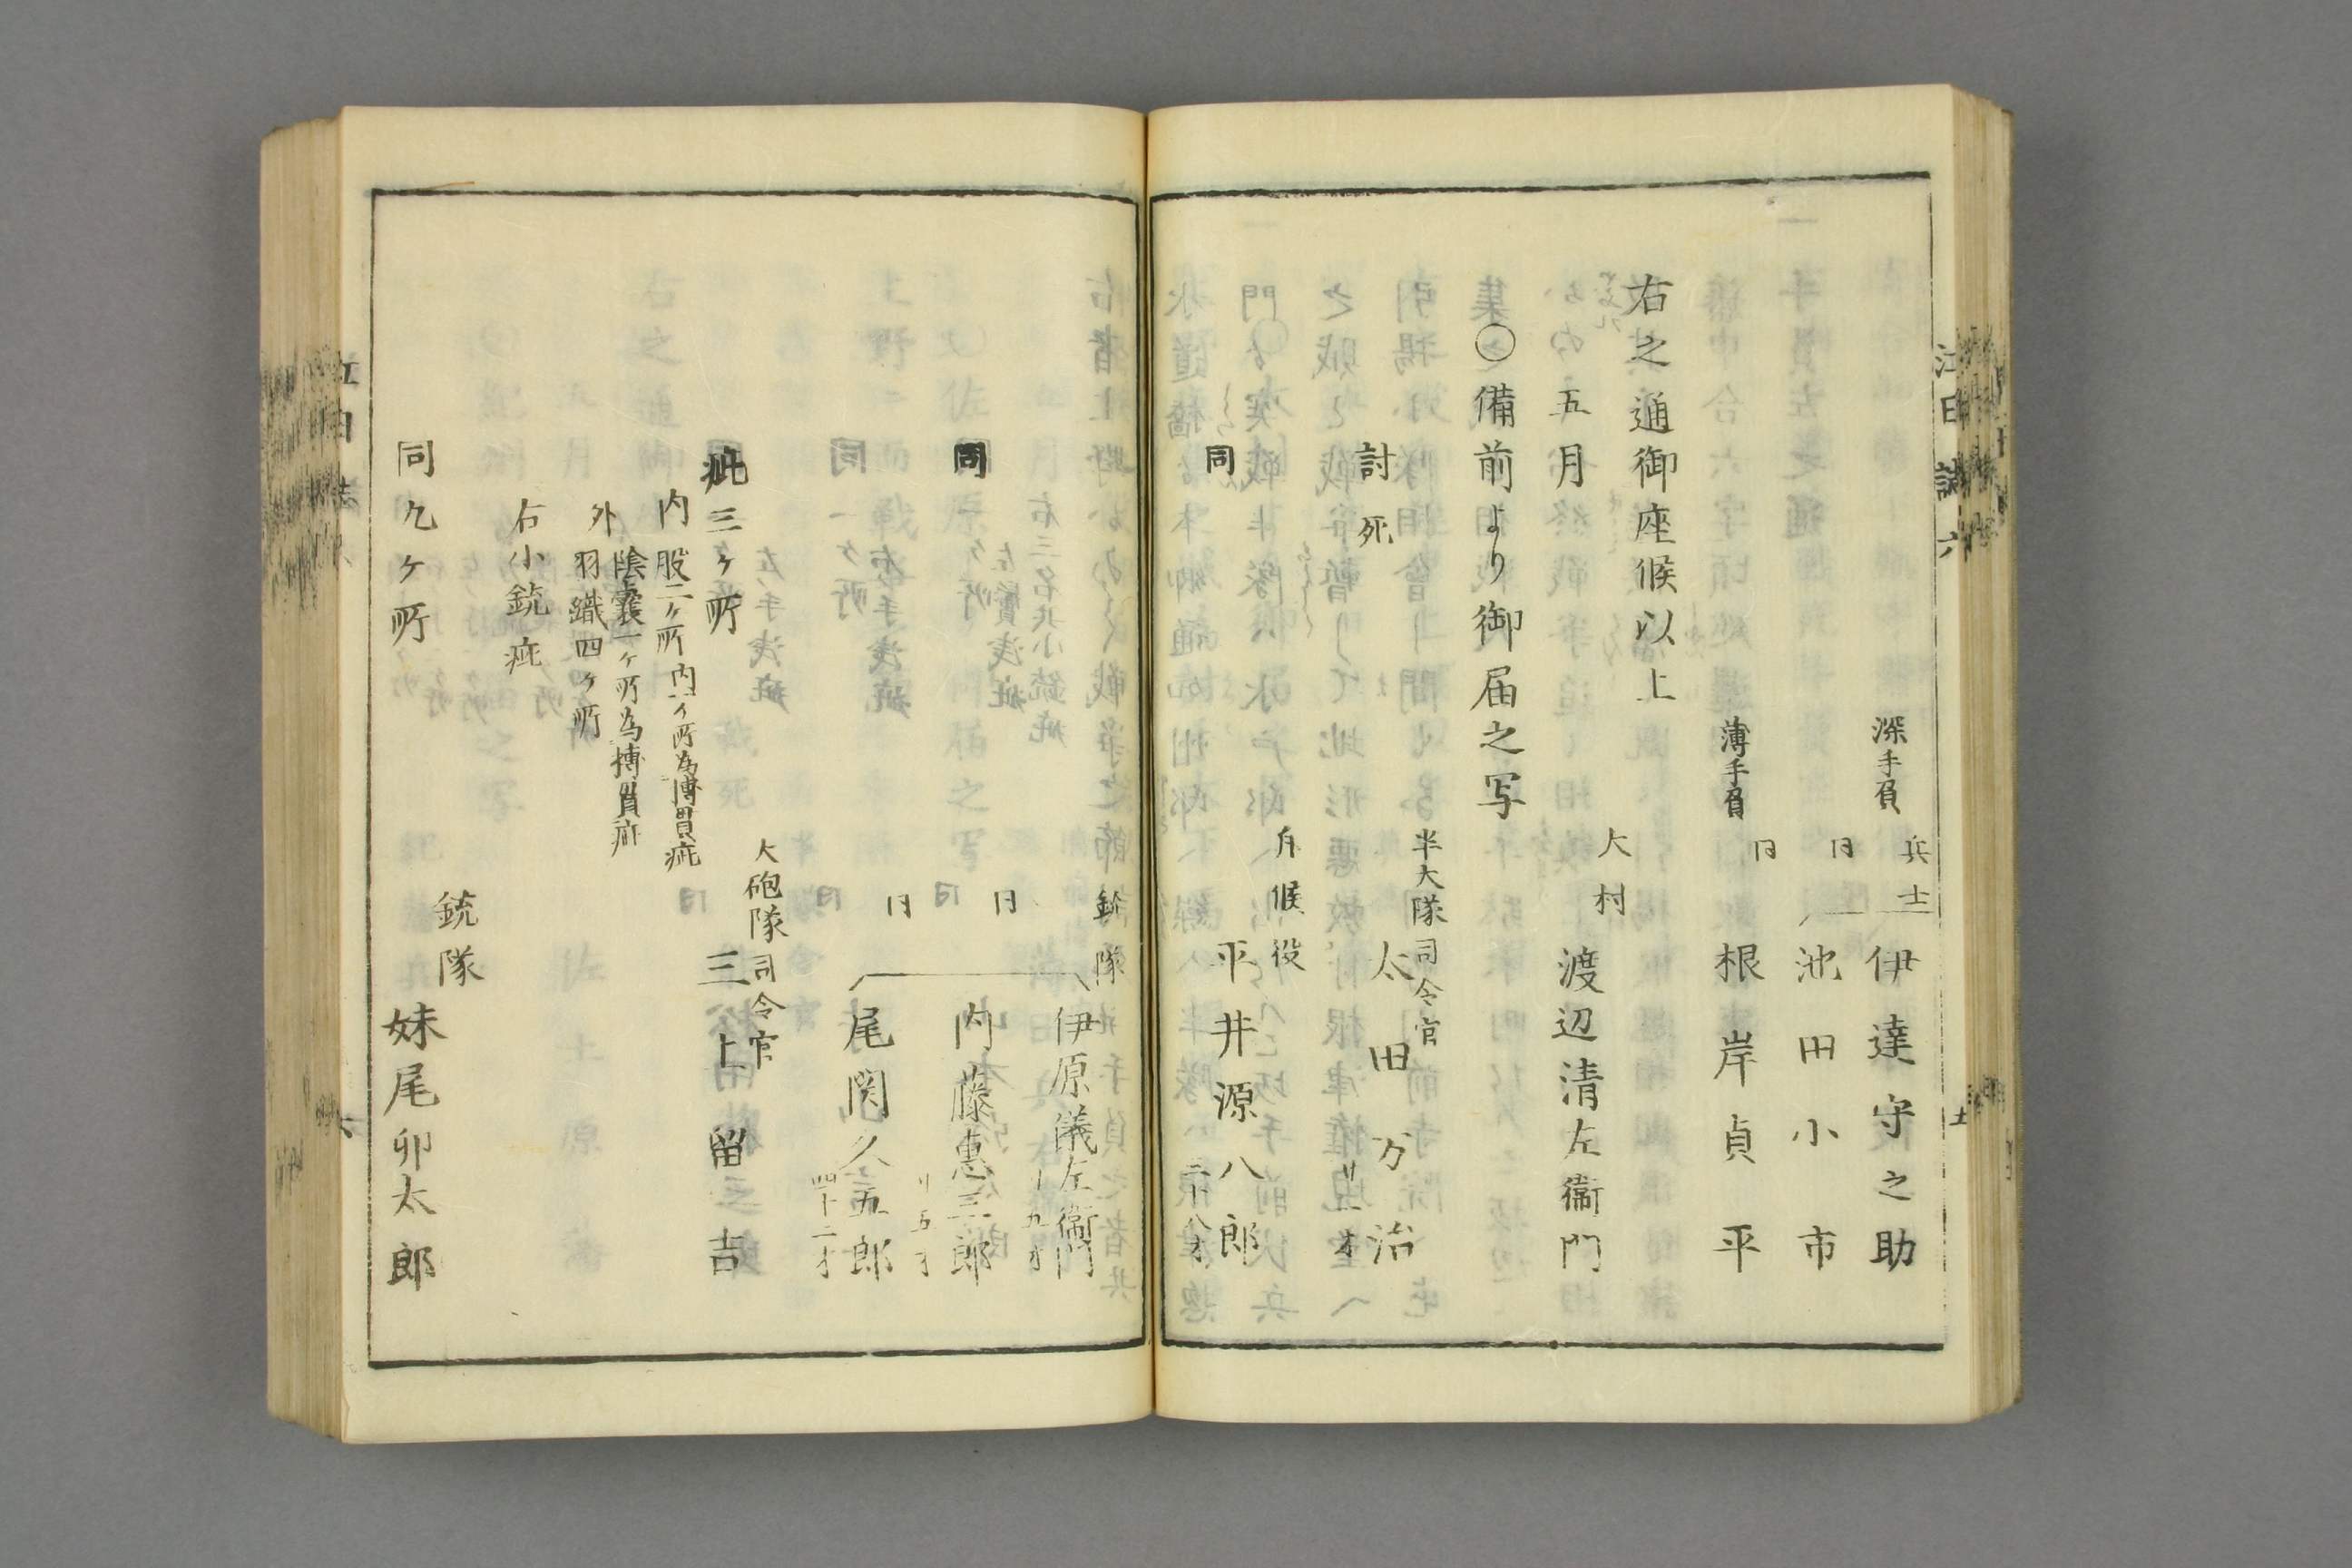 深手負 兵士 伊達守之助
同 池田小市
薄手負 同 根岸貞平
右之通御座候以上
五月 大村 渡辺清左衞門
○備前より御届之写
討死 半大隊司令官 太田万治 廿一才
同 斥候役 平井源八郎 二十八才
銃隊 伊原儀左衞門 十九才
同 同 内藤惠三郎 廿五才
同 尾関久五郎 四十二才
疵三ヶ所 大砲隊司令官 三上留吉
内 股二ヶ所内一ヶ所為博貫疵
陰嚢一ヶ所為搏貫疵
外 羽織四ヶ所
右小銃疵
同九ヶ所 銃隊 妹尾卯太郎